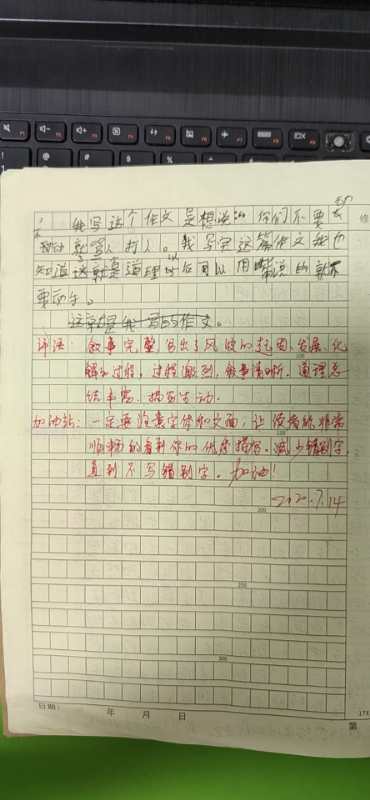 我写这个作文是想说的你们不要
动就骂人打人。我写完这篇作文我也
知道这就是道理以后可以用嘴说的就不
要动手。
这就是我写的作文。
评语：叙事完整，写出了风波的起因、发展、化
解的过程，过程激烈，叙事清晰，道理总
结丰富，描写生动。
加油站：一定要注意字体和文面，让读者能非常
顺畅的看到你的优秀描写，减少错别字，
直到不写错别字。加油！
7.14
200
250
300
日期：年 月 日
第